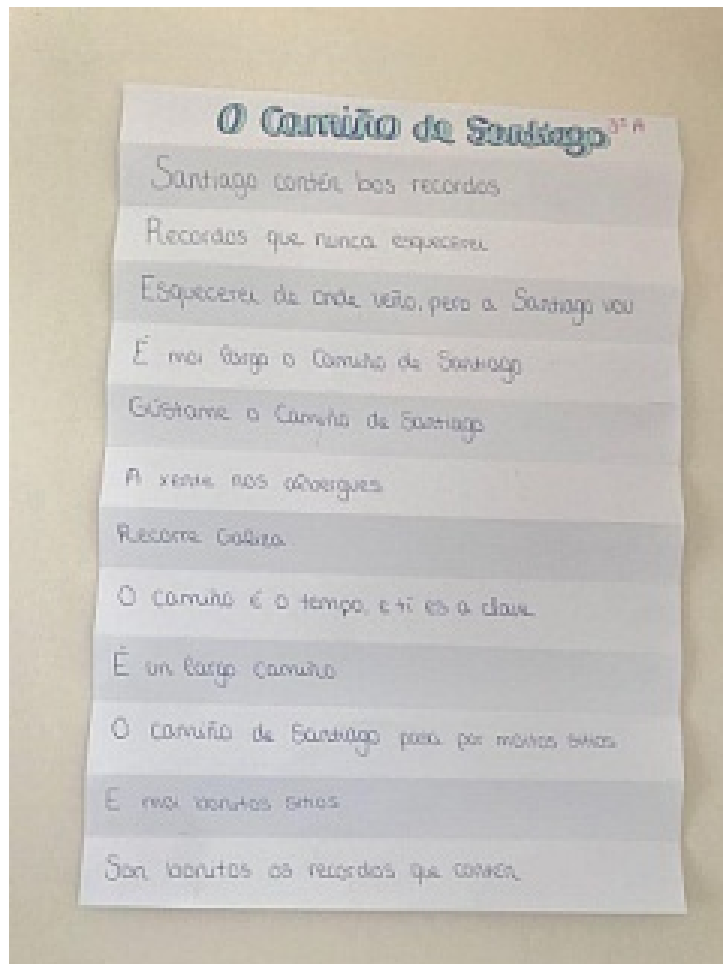 O Camiño de Santiago 3º A
Santiago contén bos recordos
Recordos que nunca esquecerei
Esquecerei de onde veño, pero a Santiago vou
É moi largo o Camiño de Santiago
Gústame o Camiño de Santiago
A xente nos albergues
Recorre Galiza
O camiño é o tempo, e ti es a clave
É un largo camiño
O camiño de Santiago pasa por moitos sitios
E moi bonitos sitios
Son bonitos os recordos que contén